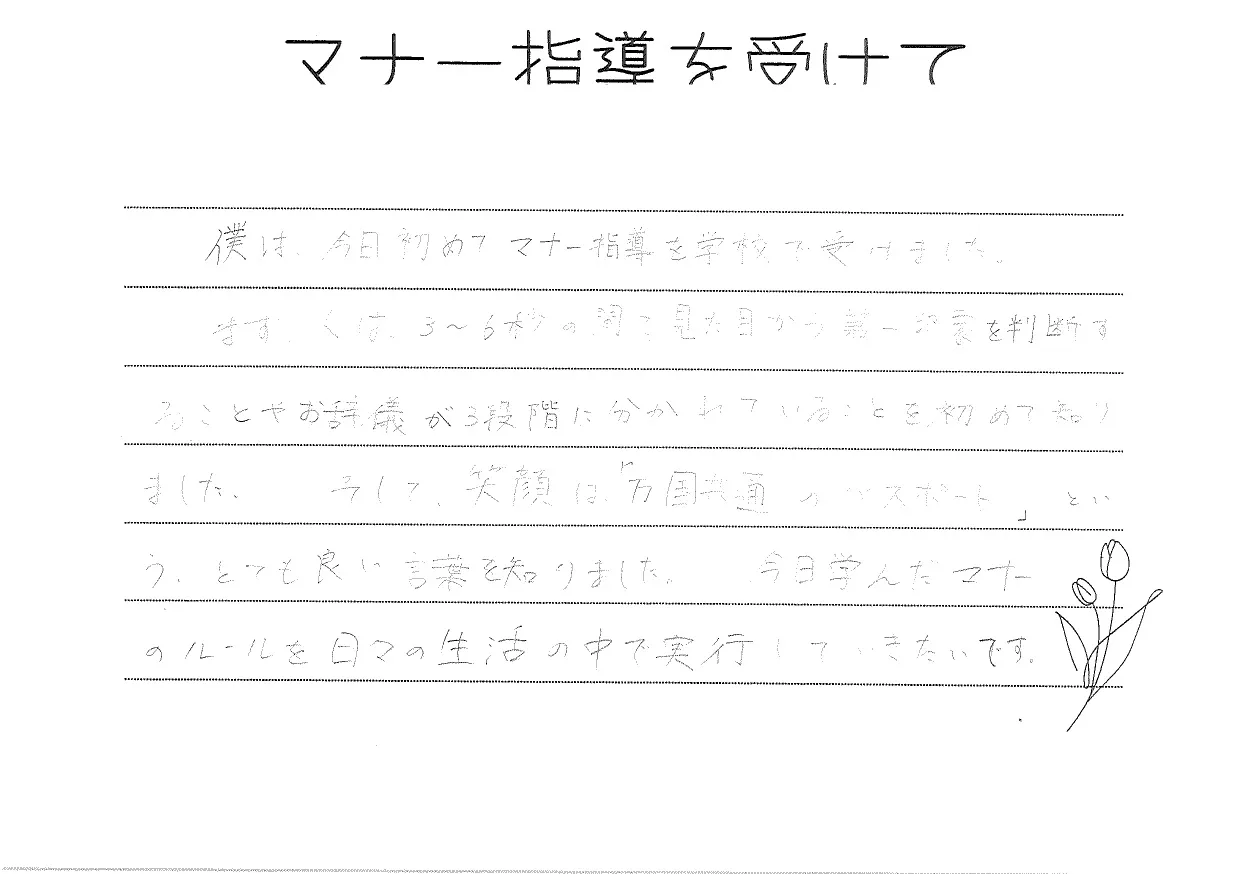 マナー指導を受けて
僕は、今日初めてマナー指導を学校で受けました。
まず、くは、3〜6秒の間で見た目から第一印象を判断す
ることやお辞儀が3段階に分かれていることを初めて知り
ました。 そして、笑顔は「万国共通のパスポート」とい
う、とても良い言葉を知りました。 今日学んだマナー
のルールを日々の生活の中で実行していきたいです。